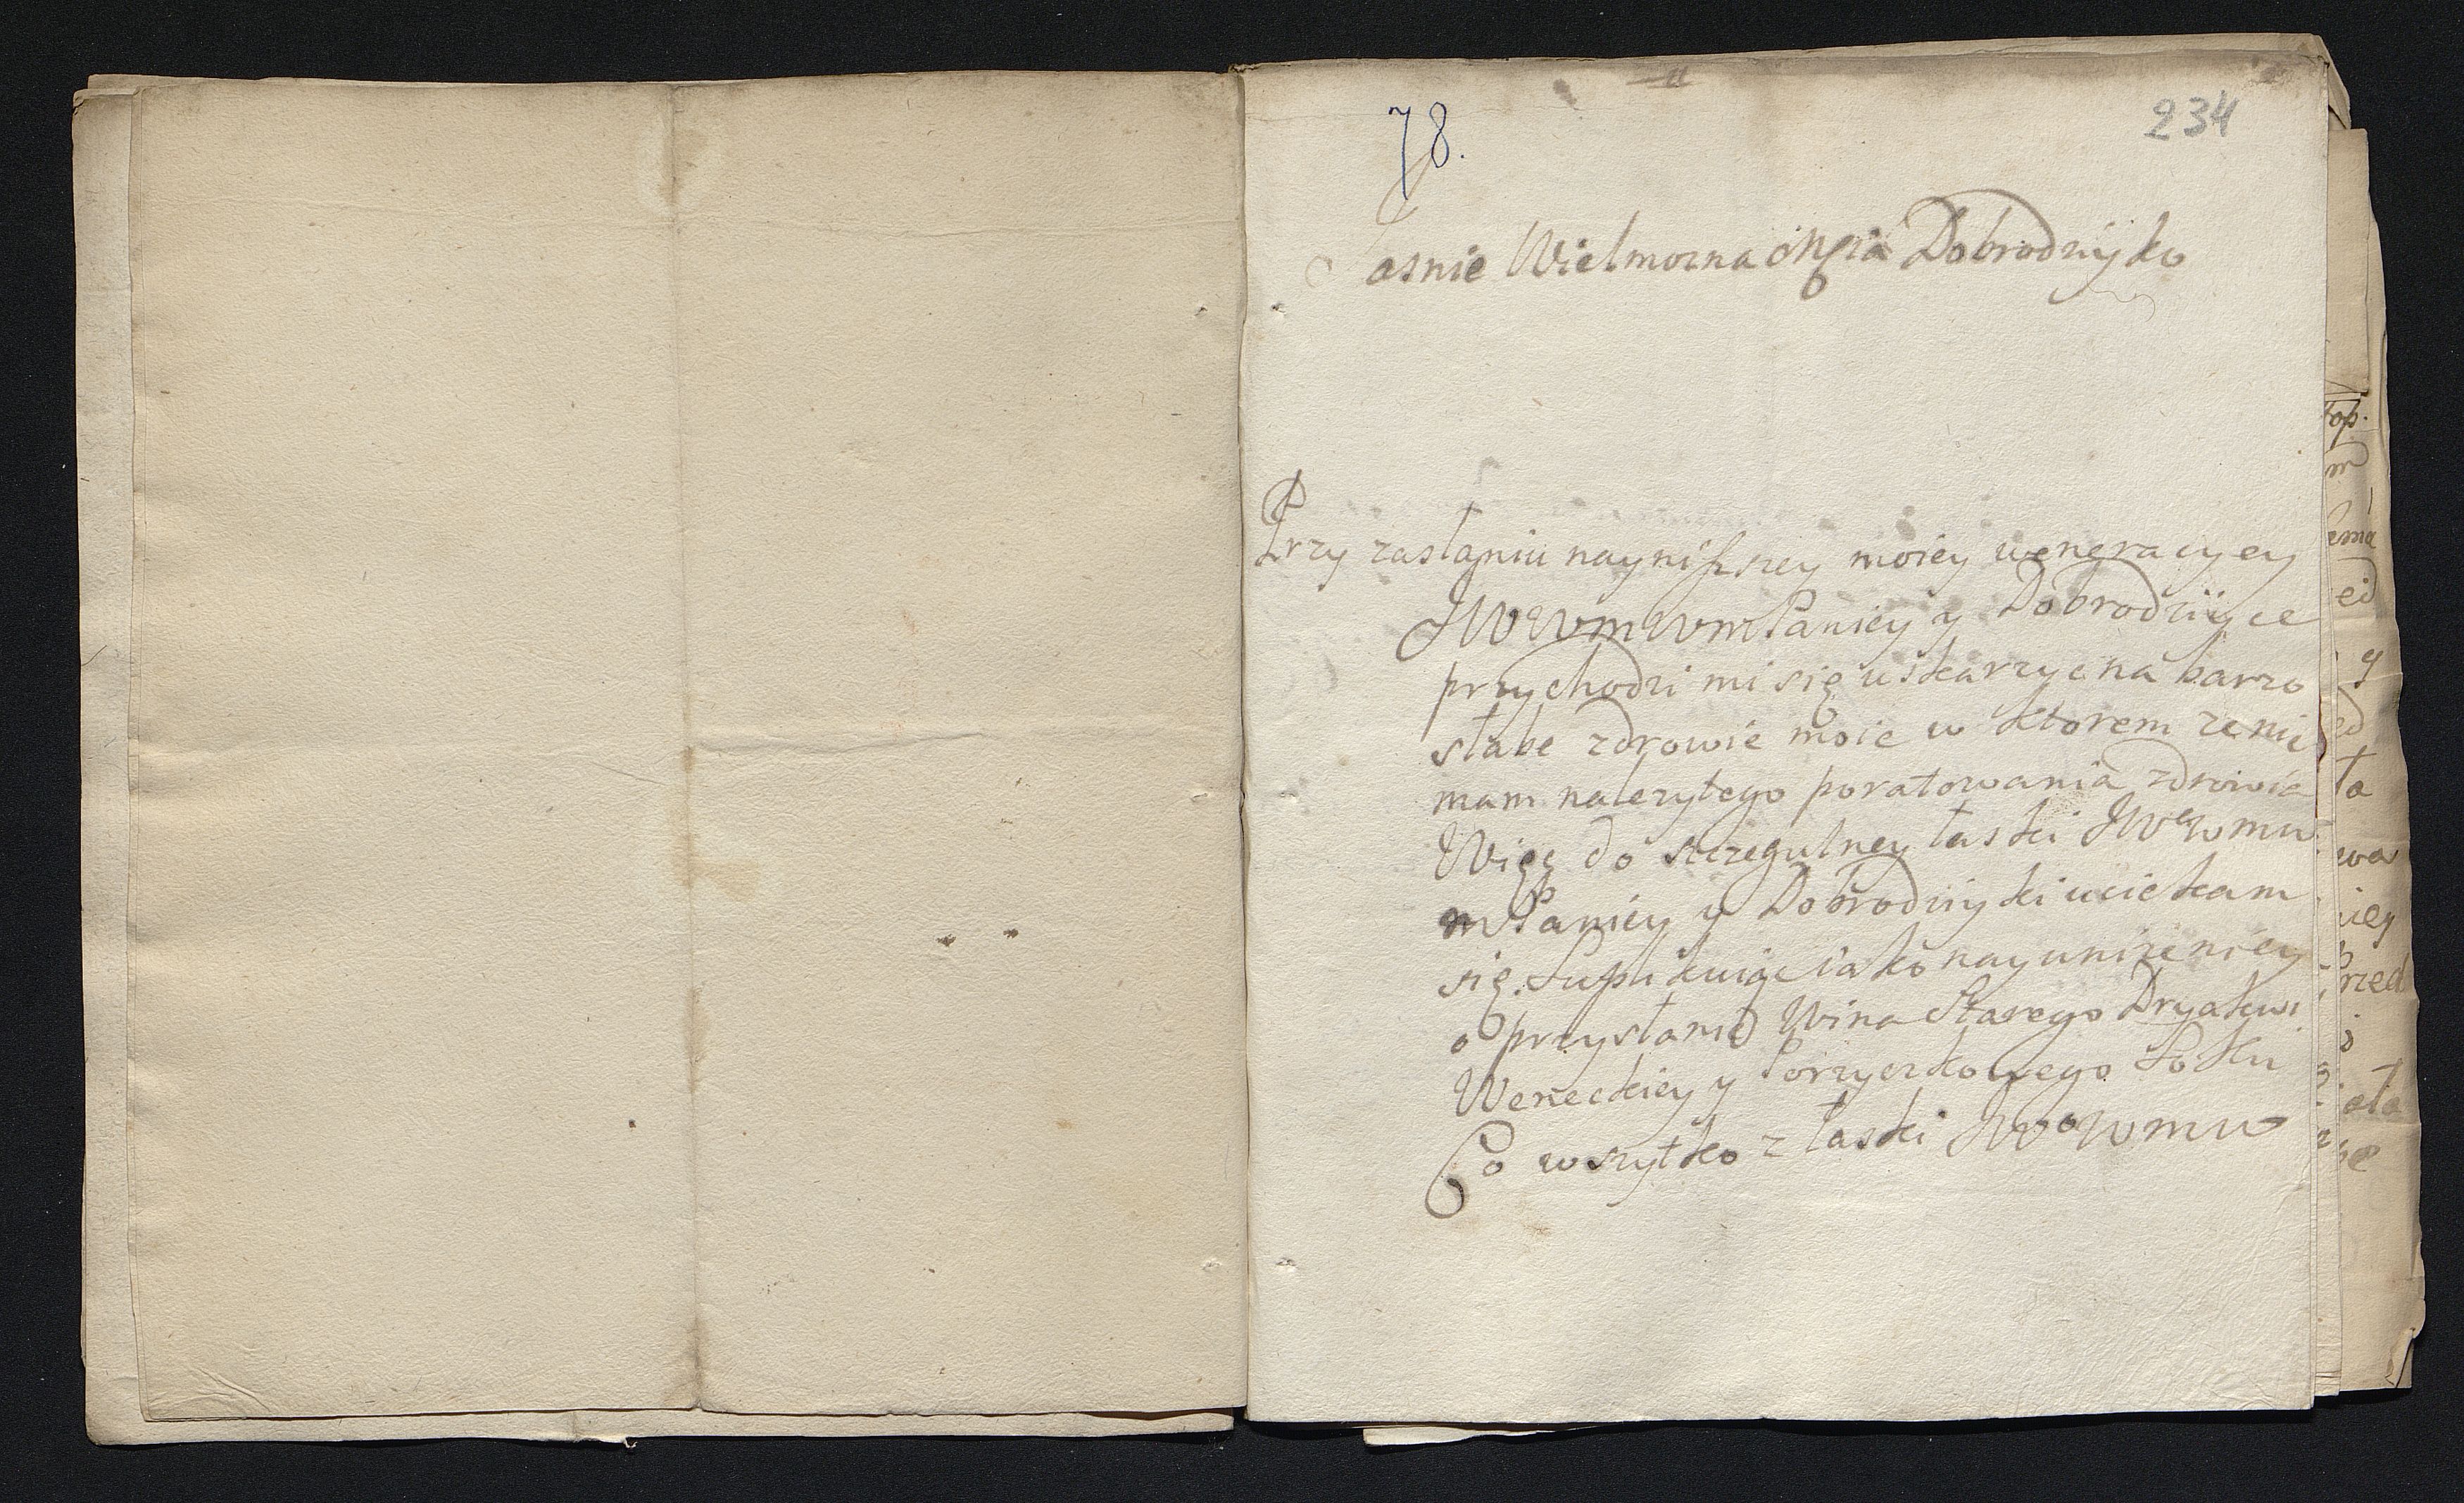 78.
234
Jasnie Wielmozna Mścia Dobrodziyko
Przy zasłaniu nayniszszey moiey weneracyey
JWWmWmPaniey y Dobrodziyce
przychodzi mi się uskarzyc na barzo
słabe zdrowie moie w ktorem ze nie
mam nalezytego poratowania zdrowia
Więc do sczegulney łaski JWWmu
mPaniey y Dobrodziyki uciekam
się. Suplikuiąc iako nayunizeniey
o przysłanie Wina Starego Dryakwi
Weneckiey y Porzyczkowego Sokku
Co wszytko z łaski JWWmu